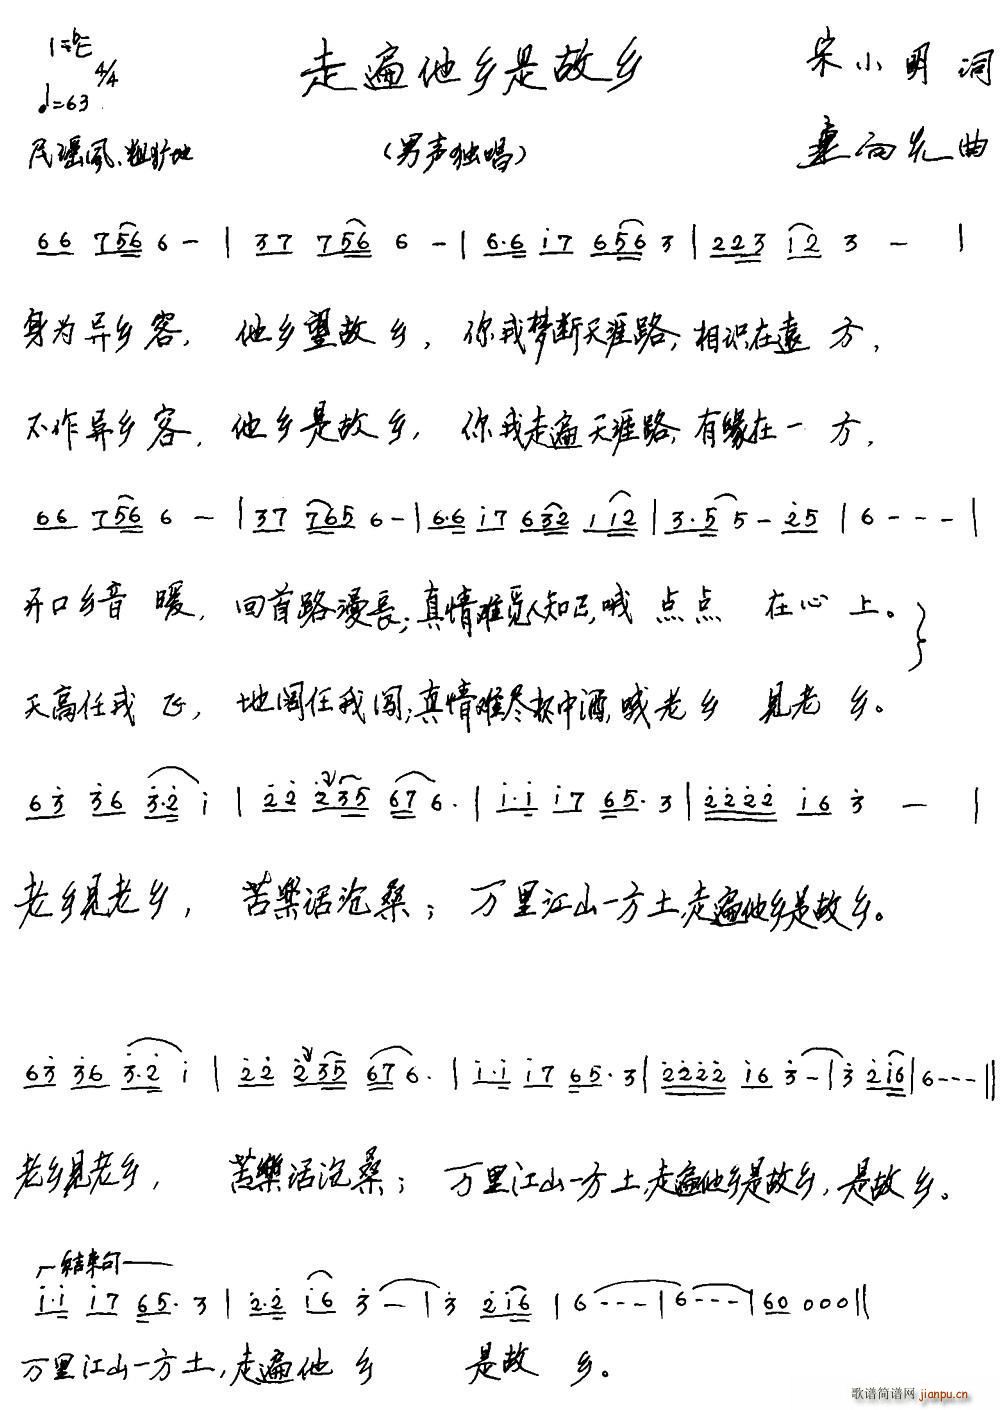 1=bE 4/4
走遍他乡是故乡
宋小明 词
♩=63
民瑶风、粗犷地
(男声独唱)
曲
66 756 6 - | 37 756 6 - | 6·6 i7 656 3 | 223 i2 3 - |
身为异乡客, 他乡望故乡, 你我梦断天涯路; 相识在遠方,
不作异乡客, 他乡是故乡, 你我走遍天涯路; 有缘在一方,
66 756 6 - | 37 765 6 - | 6·6 i7 632 1 i2 | 3·5 5 - 25 | 6 - - - |
开口乡音暖, 回首路漫長; 真情难觅人知己, 哦 点点 在心上。
天高任我飞, 地阔任我闯; 真情难尽杯中酒, 哦老乡 見老乡。
63 36 3·2 i | 22 235 67 6· | i·i i7 65· 3 | 2222 i6 3 - |
老乡見老乡, 苦樂话沧桑; 万里江山一方土, 走遍他乡是故乡。
63 36 3·2 i | 22 235 67 6· | i·i i7 65· 3 | 2222 i6 3 - | 3 2i6 | 6 - - - ||
老乡見老乡, 苦樂话沧桑; 万里江山一方土, 走遍他乡是故乡, 是故乡。
结束句
i·i i7 65· 3 | 2·2 i6 3 - | 3 2i6 | 6 - - - | 6 - - - | 60 000 ||
万里江山一方土, 走遍他乡 是故乡。
歌谱简谱网 jianpu.cn